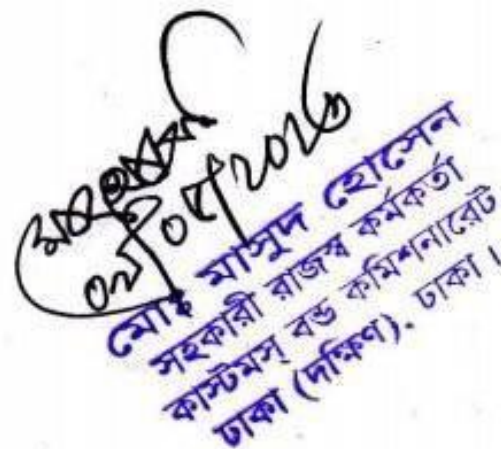 মোঃ মাসুদ হোসেন
সহকারী রাজস্ব কর্মকর্তা
কাস্টমস্ বন্ড কমিশনারেট
ঢাকা (দক্ষিণ). ঢাকা।